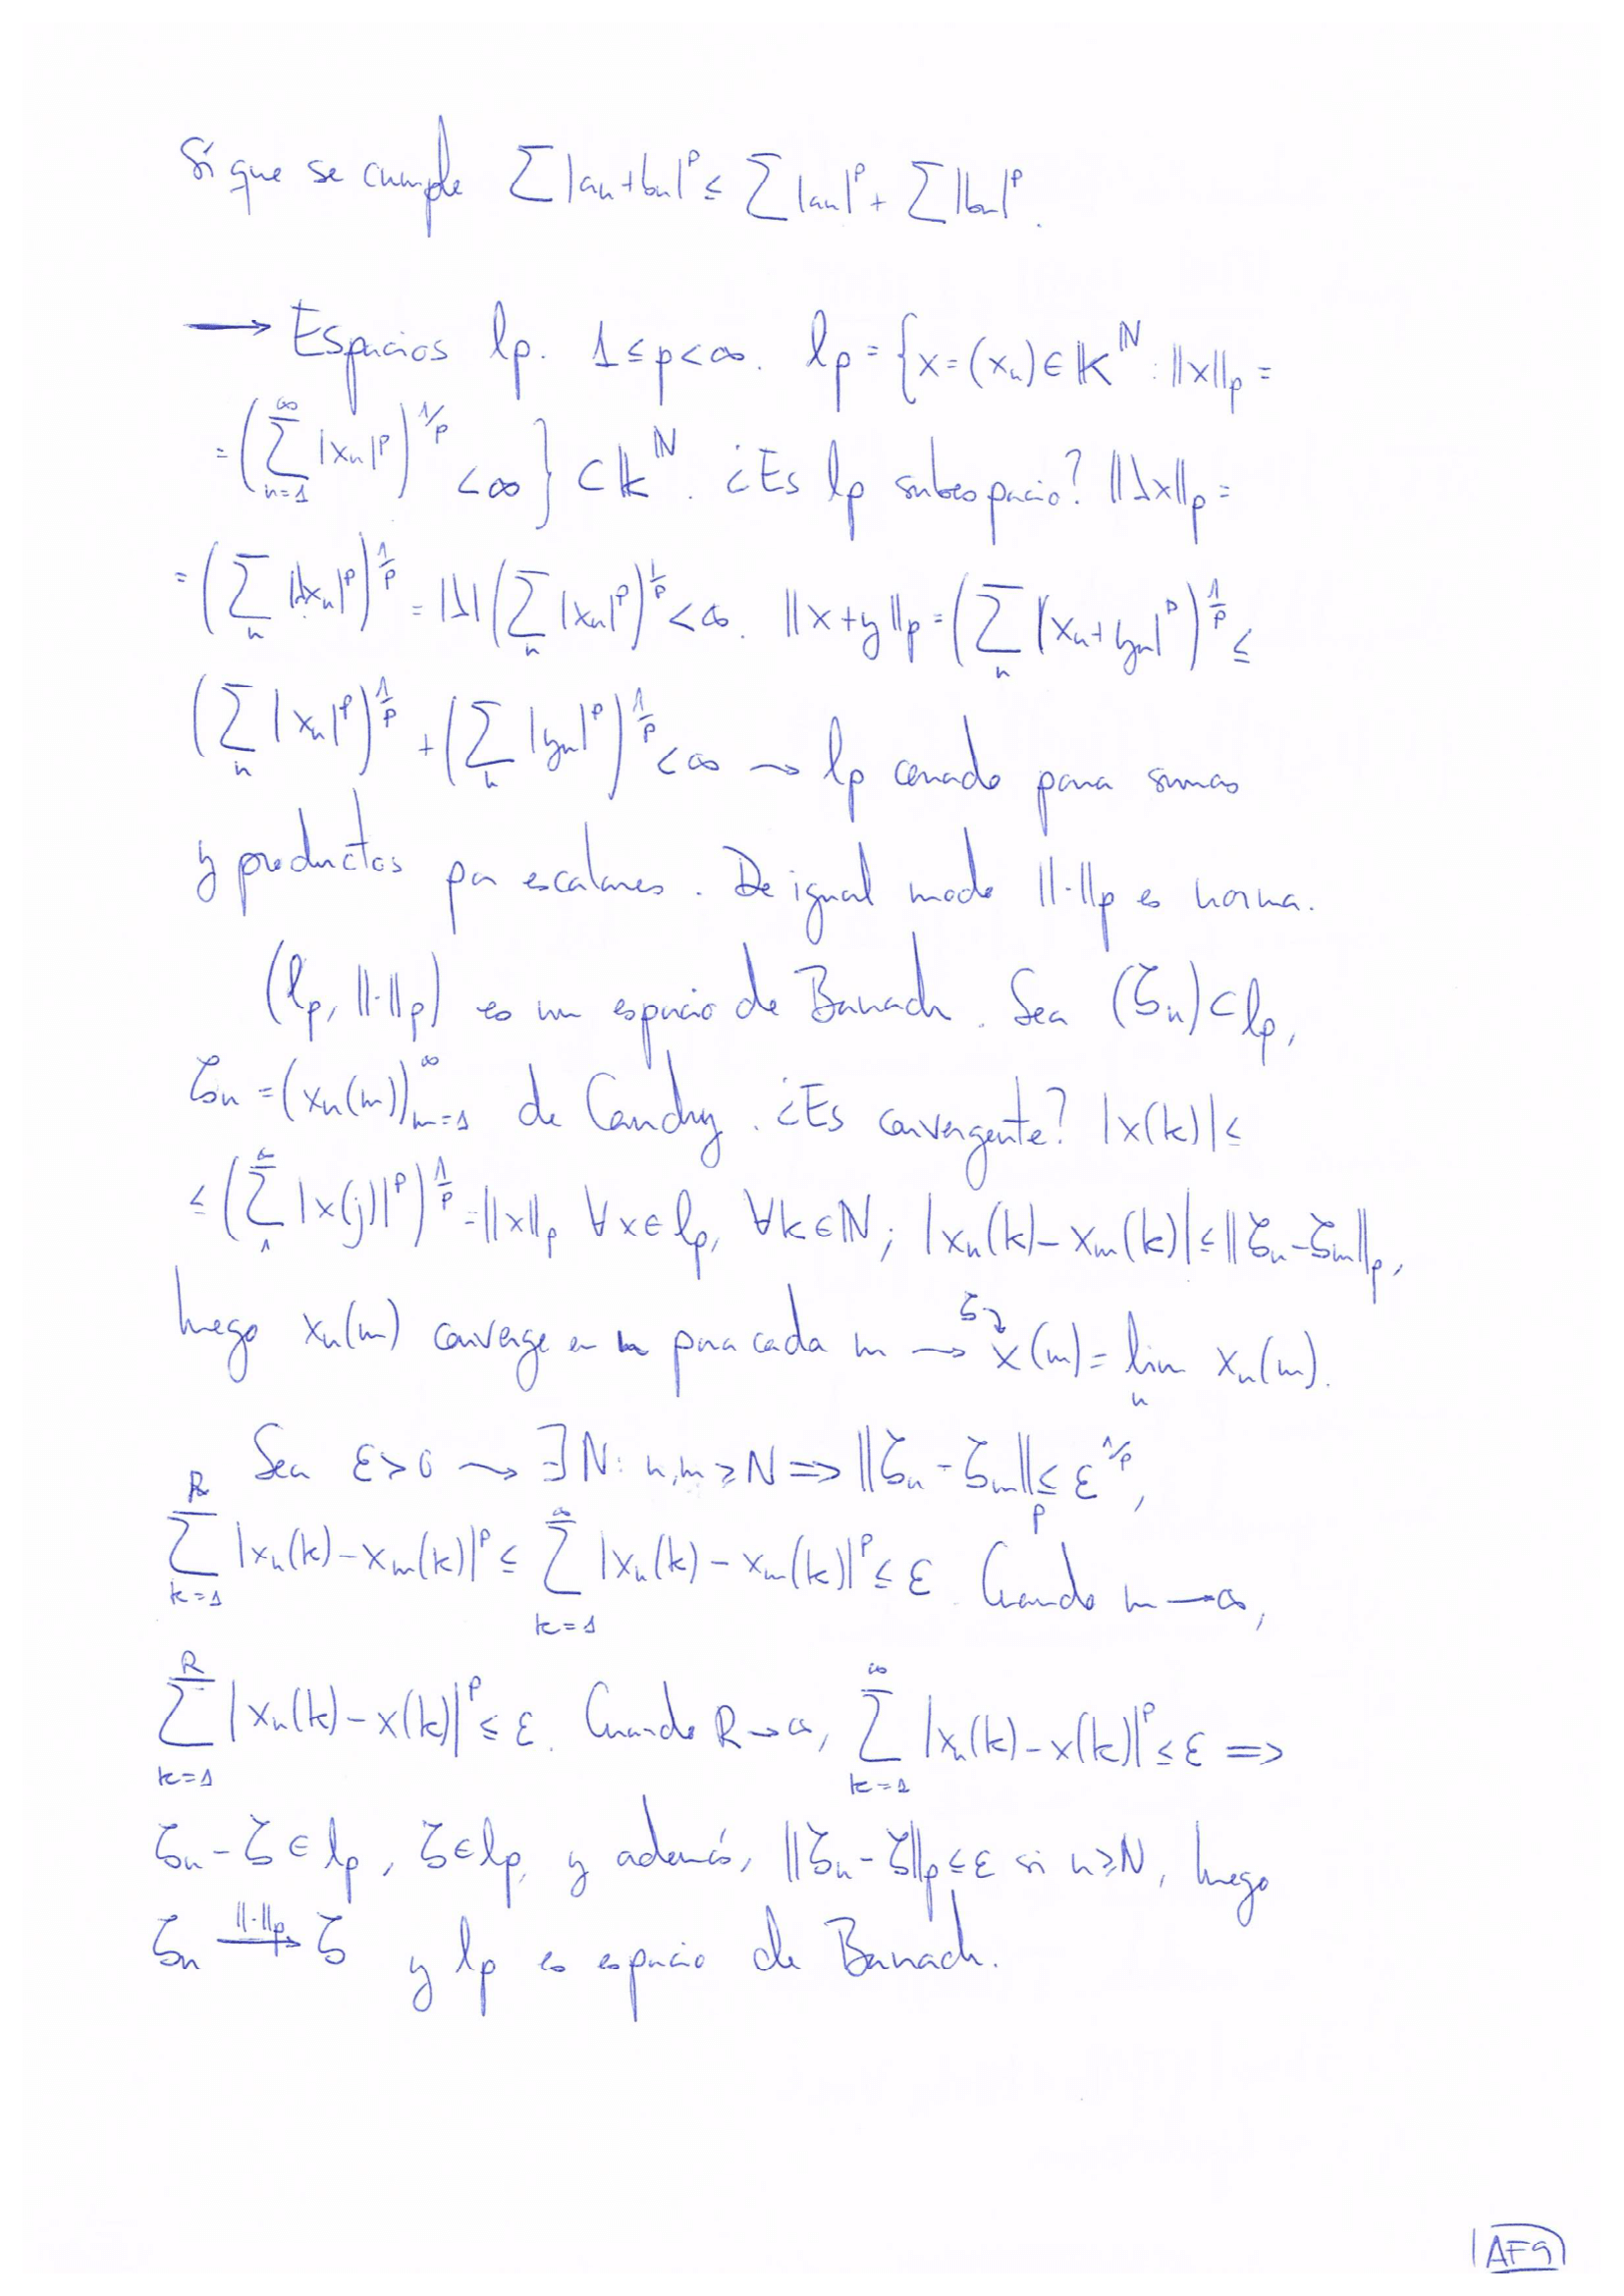 Sí que se cumple ∑|an+bn|^p ≤ ∑|an|^p + ∑|bn|^p.
→ Espacios lp. 1≤p<∞. lp = {x=(xn)∈K^N : ||x||p =
= (∑_{n=1}^∞ |xn|^p)^{1/p} <∞} ⊂ K^N. ¿Es lp subespacio? ||λx||p =
= (∑_n |λxn|^p)^{1/p} = |λ|(∑_n |xn|^p)^{1/p} <∞. ||x+y||p = (∑_n |xn+yn|^p)^{1/p} ≤
(∑_n |xn|^p)^{1/p} + (∑_n |yn|^p)^{1/p} <∞ ⇝ lp cerrado para sumas
y productos por escalares. De igual modo ||·||p es norma.
(lp, ||·||p) es un espacio de Banach. Sea (ζn)⊂lp,
ζn = (xn(m))_{m=1}^∞ de Cauchy. ¿Es convergente? |x(k)| ≤
≤ (∑_1^∞ |x(j)|^p)^{1/p} = ||x||p ∀x∈lp, ∀k∈N; |xn(k)-xm(k)| ≤ ||ζn-ζm||p,
luego xn(m) converge en n para cada m ⇝ ζ↴ x(m) = lim_n xn(m).
Sea ε>0 ⇝ ∃N: n,m≥N ⟹ ||ζn-ζm||p ≤ ε^{1/p},
∑_{k=1}^R |xn(k)-xm(k)|^p ≤ ∑_{k=1}^∞ |xn(k)-xm(k)|^p ≤ ε. Cuando m→∞,
∑_{k=1}^R |xn(k)-x(k)|^p ≤ ε. Cuando R→∞, ∑_{k=1}^∞ |xn(k)-x(k)|^p ≤ ε ⟹
ζn-ζ∈lp, ζ∈lp, y además, ||ζn-ζ||p ≤ ε si n≥N, luego
ζn —||·||p→ ζ y lp es espacio de Banach.
AF9